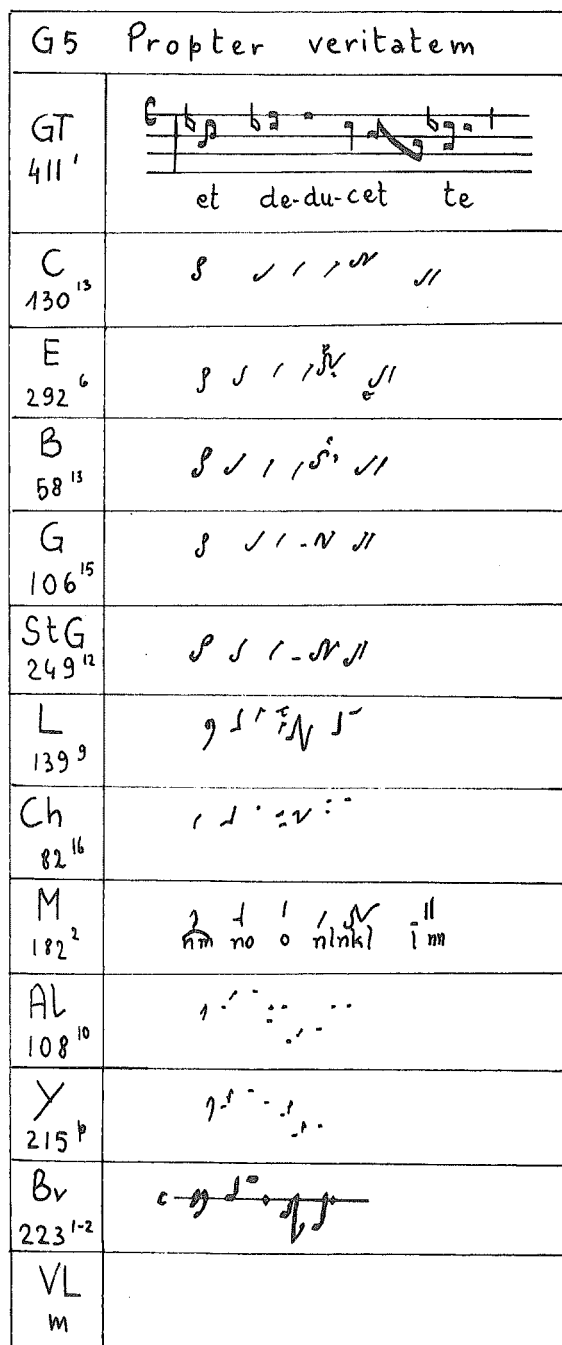 G5 Propter veritatem
GT
411'
et de-du-cet te
C
130 13
E
292 6
B
58 13
G
106 15
StG
249 12
L
139 9
Ch
82 16
M
182 2
nm no o nlnkl i nn
AL
108 10
Y
215
Bv
c
223 1-2
VL
m